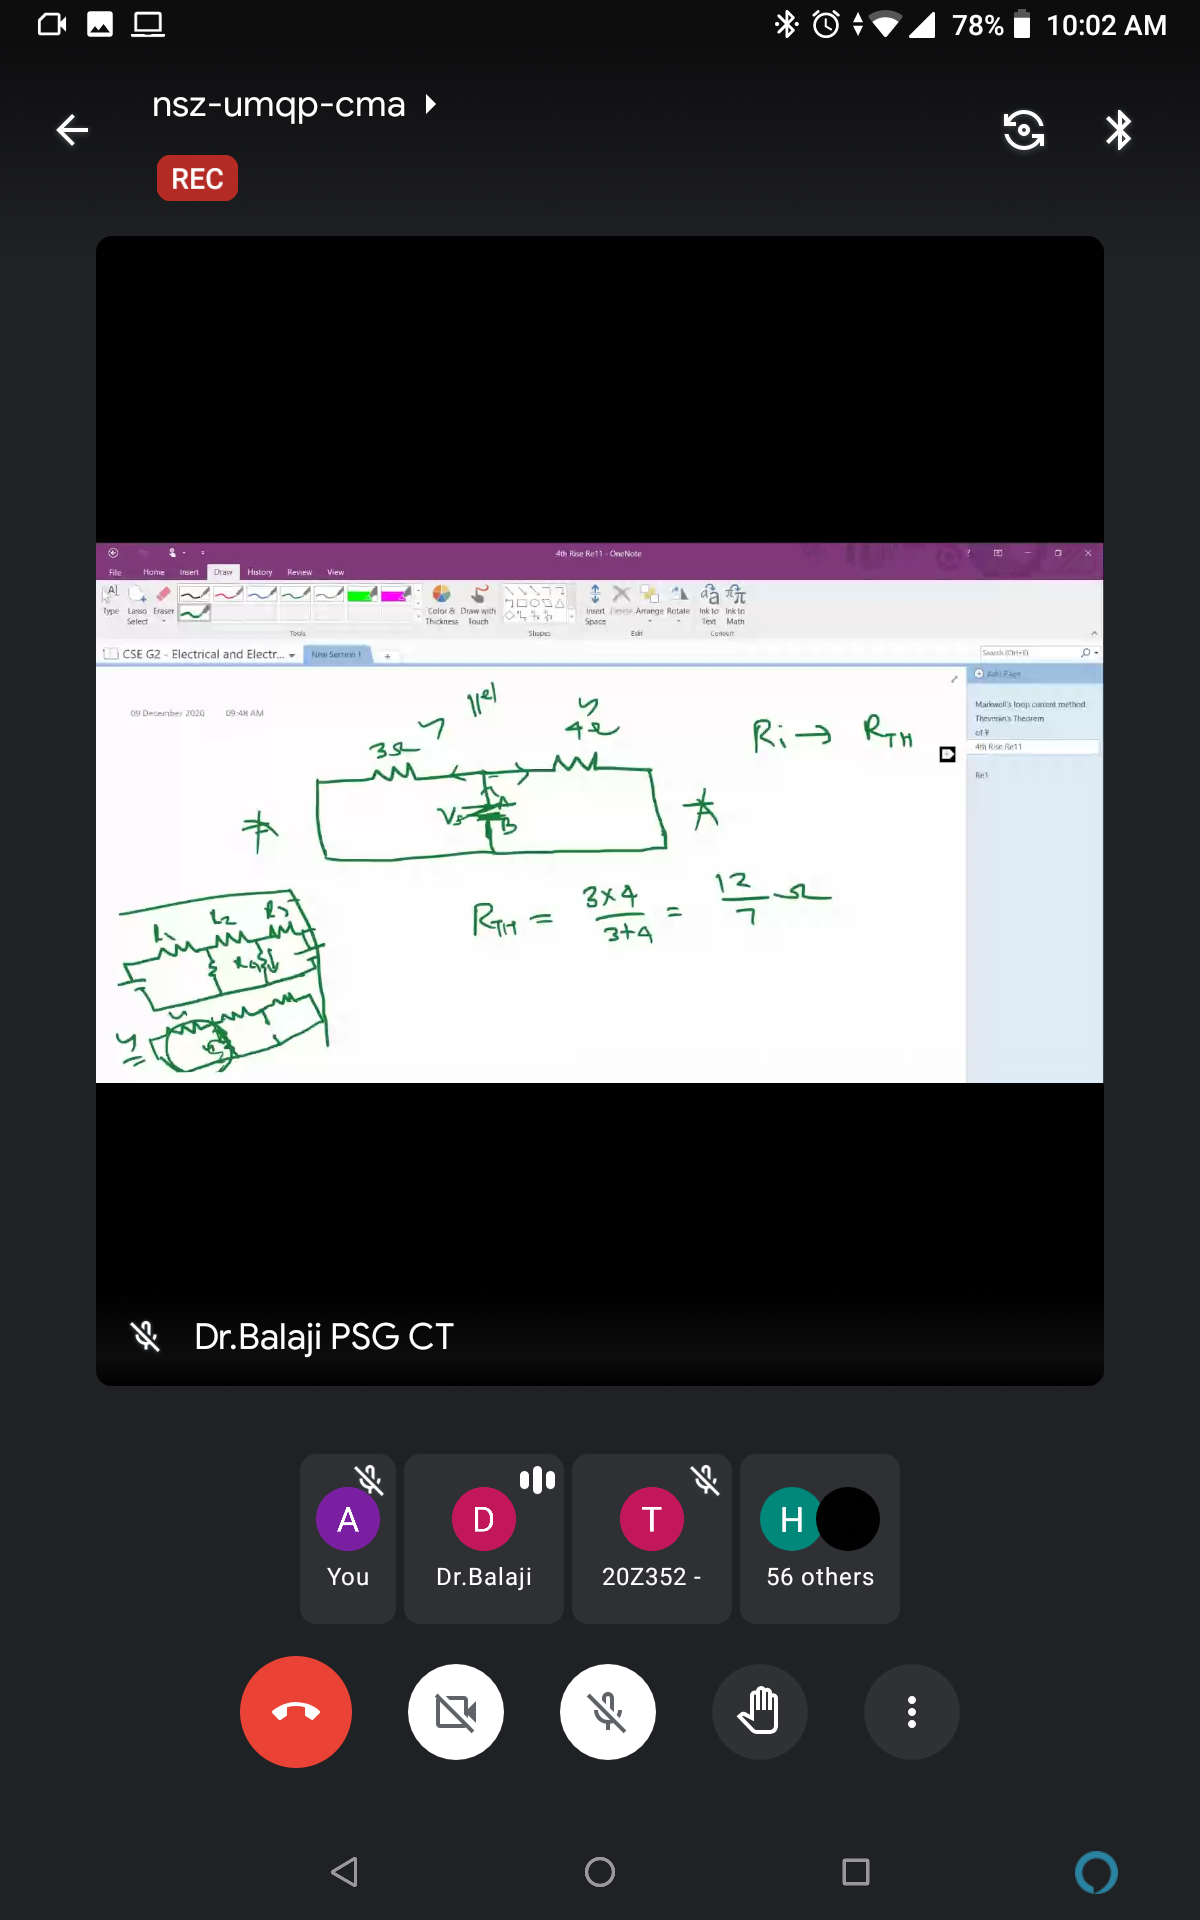 78% 10:02 AM
nsz-umqp-cma
REC
4th Rise Re11 - OneNote
File Home Insert Draw History Review View
Type Lasso Select Eraser Color & Thickness Draw with Touch Insert Space Delete Arrange Rotate Ink to Text Ink to Math
Tools Shapes Edit Convert
CSE G2 - Electrical and Electr... New Section 1 +
Search (Ctrl+E)
Add Page
09 December 2020 09:48 AM
Markwell's loop current method
Thevenin's Theorem
of ¥
4th Rise Re11
Re1
llel
3Ω 4Ω
Ri → RTH
Vs A
B
RTH = 3×4 / 3+4 = 12/7 Ω
R1 R2 R3
R4
Dr.Balaji PSG CT
A D T H
You Dr.Balaji 20Z352 - 56 others